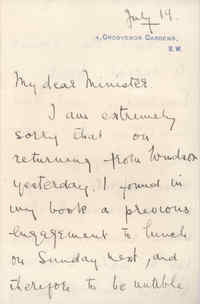 July 19.
4, GROSVENOR GARDENS,
S.W.
My dear Minister
I am extremely
sorry that on
returning from Windsor
yesterday, I found in
my book a previous
engagement to lunch
on Sunday next, and
therefore to be unable